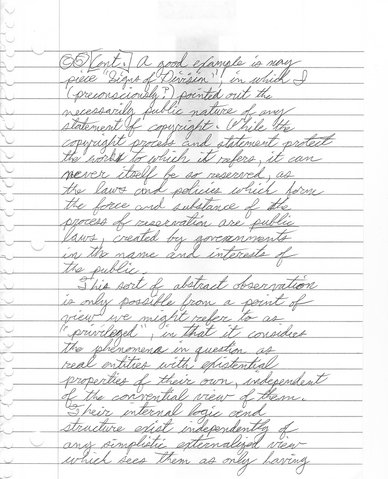 05 [cont.] A good example is my
piece "Signs of Division", in which I
(preconsciously?) pointed out the
necessarily public nature of any
statement of copyright. While the
copyright process and statement protect
the work to which it refers, it can
never itself be so reserved, as
the laws and policies which form
the force and substance of the
process of reservation are public
laws, created by governments
in the name and interests of
the public.
This sort of abstract observation
is only possible from a point of
view we might refer to as
"privileged", in that it considers
the phenomena in question as
real entities with existential
properties of their own, independent
of the convential view of them.
Their internal logic and
structure exist independently of
any simplistic externalized view
which sees them as only having